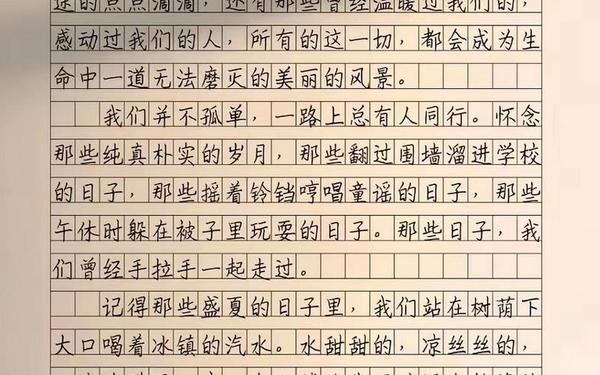 途的点点滴滴，还有那些曾经温暖过我们的，
感动过我们的人，所有的这一切，都会成为生
命中一道无法磨灭的美丽的风景。
我们并不孤单，一路上总有人同行。怀念
那些纯真朴实的岁月，那些翻过围墙溜进学校
的日子，那些摇着铃铛哼唱童谣的日子，那些
午休时躲在被子里玩耍的日子。那些日子，我
们曾经手拉手一起走过。
记得那些盛夏的日子里，我们站在树荫下
大口喝着冰镇的汽水。水甜甜的，凉丝丝的，